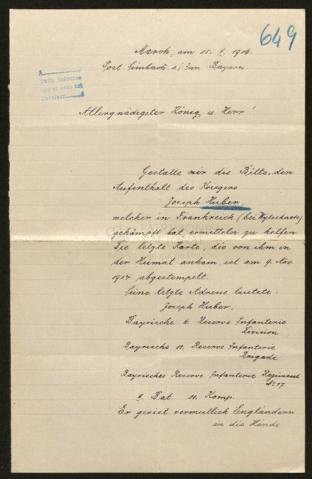 649
am 15. 1. 1915.
Post Simbach a/Inn Bayern.
Allergnädigster König u. Herr!
Gestatte mir die Bitte, den
Aufenthalt des Kriegers
Joseph Huber
welcher in Frankreich (bei Wytschaete)
gekämpft hat ermitteln zu helfen.
Die letzte Karte, die von ihm in
der Heimat ankam, ist am 9. Nov.
abgestempelt.
Seine letzte Adresse lautete:
Joseph Huber,
Bayrische 6 Reserve Infanterie
Division
Bayrische 12. Reserve Infanterie
Brigade
Bayrisches Reserve Infanterie Regiment
No 17
3 Bat. 11. Komp.
Er geriet vermutlich Engländern
in die Hände